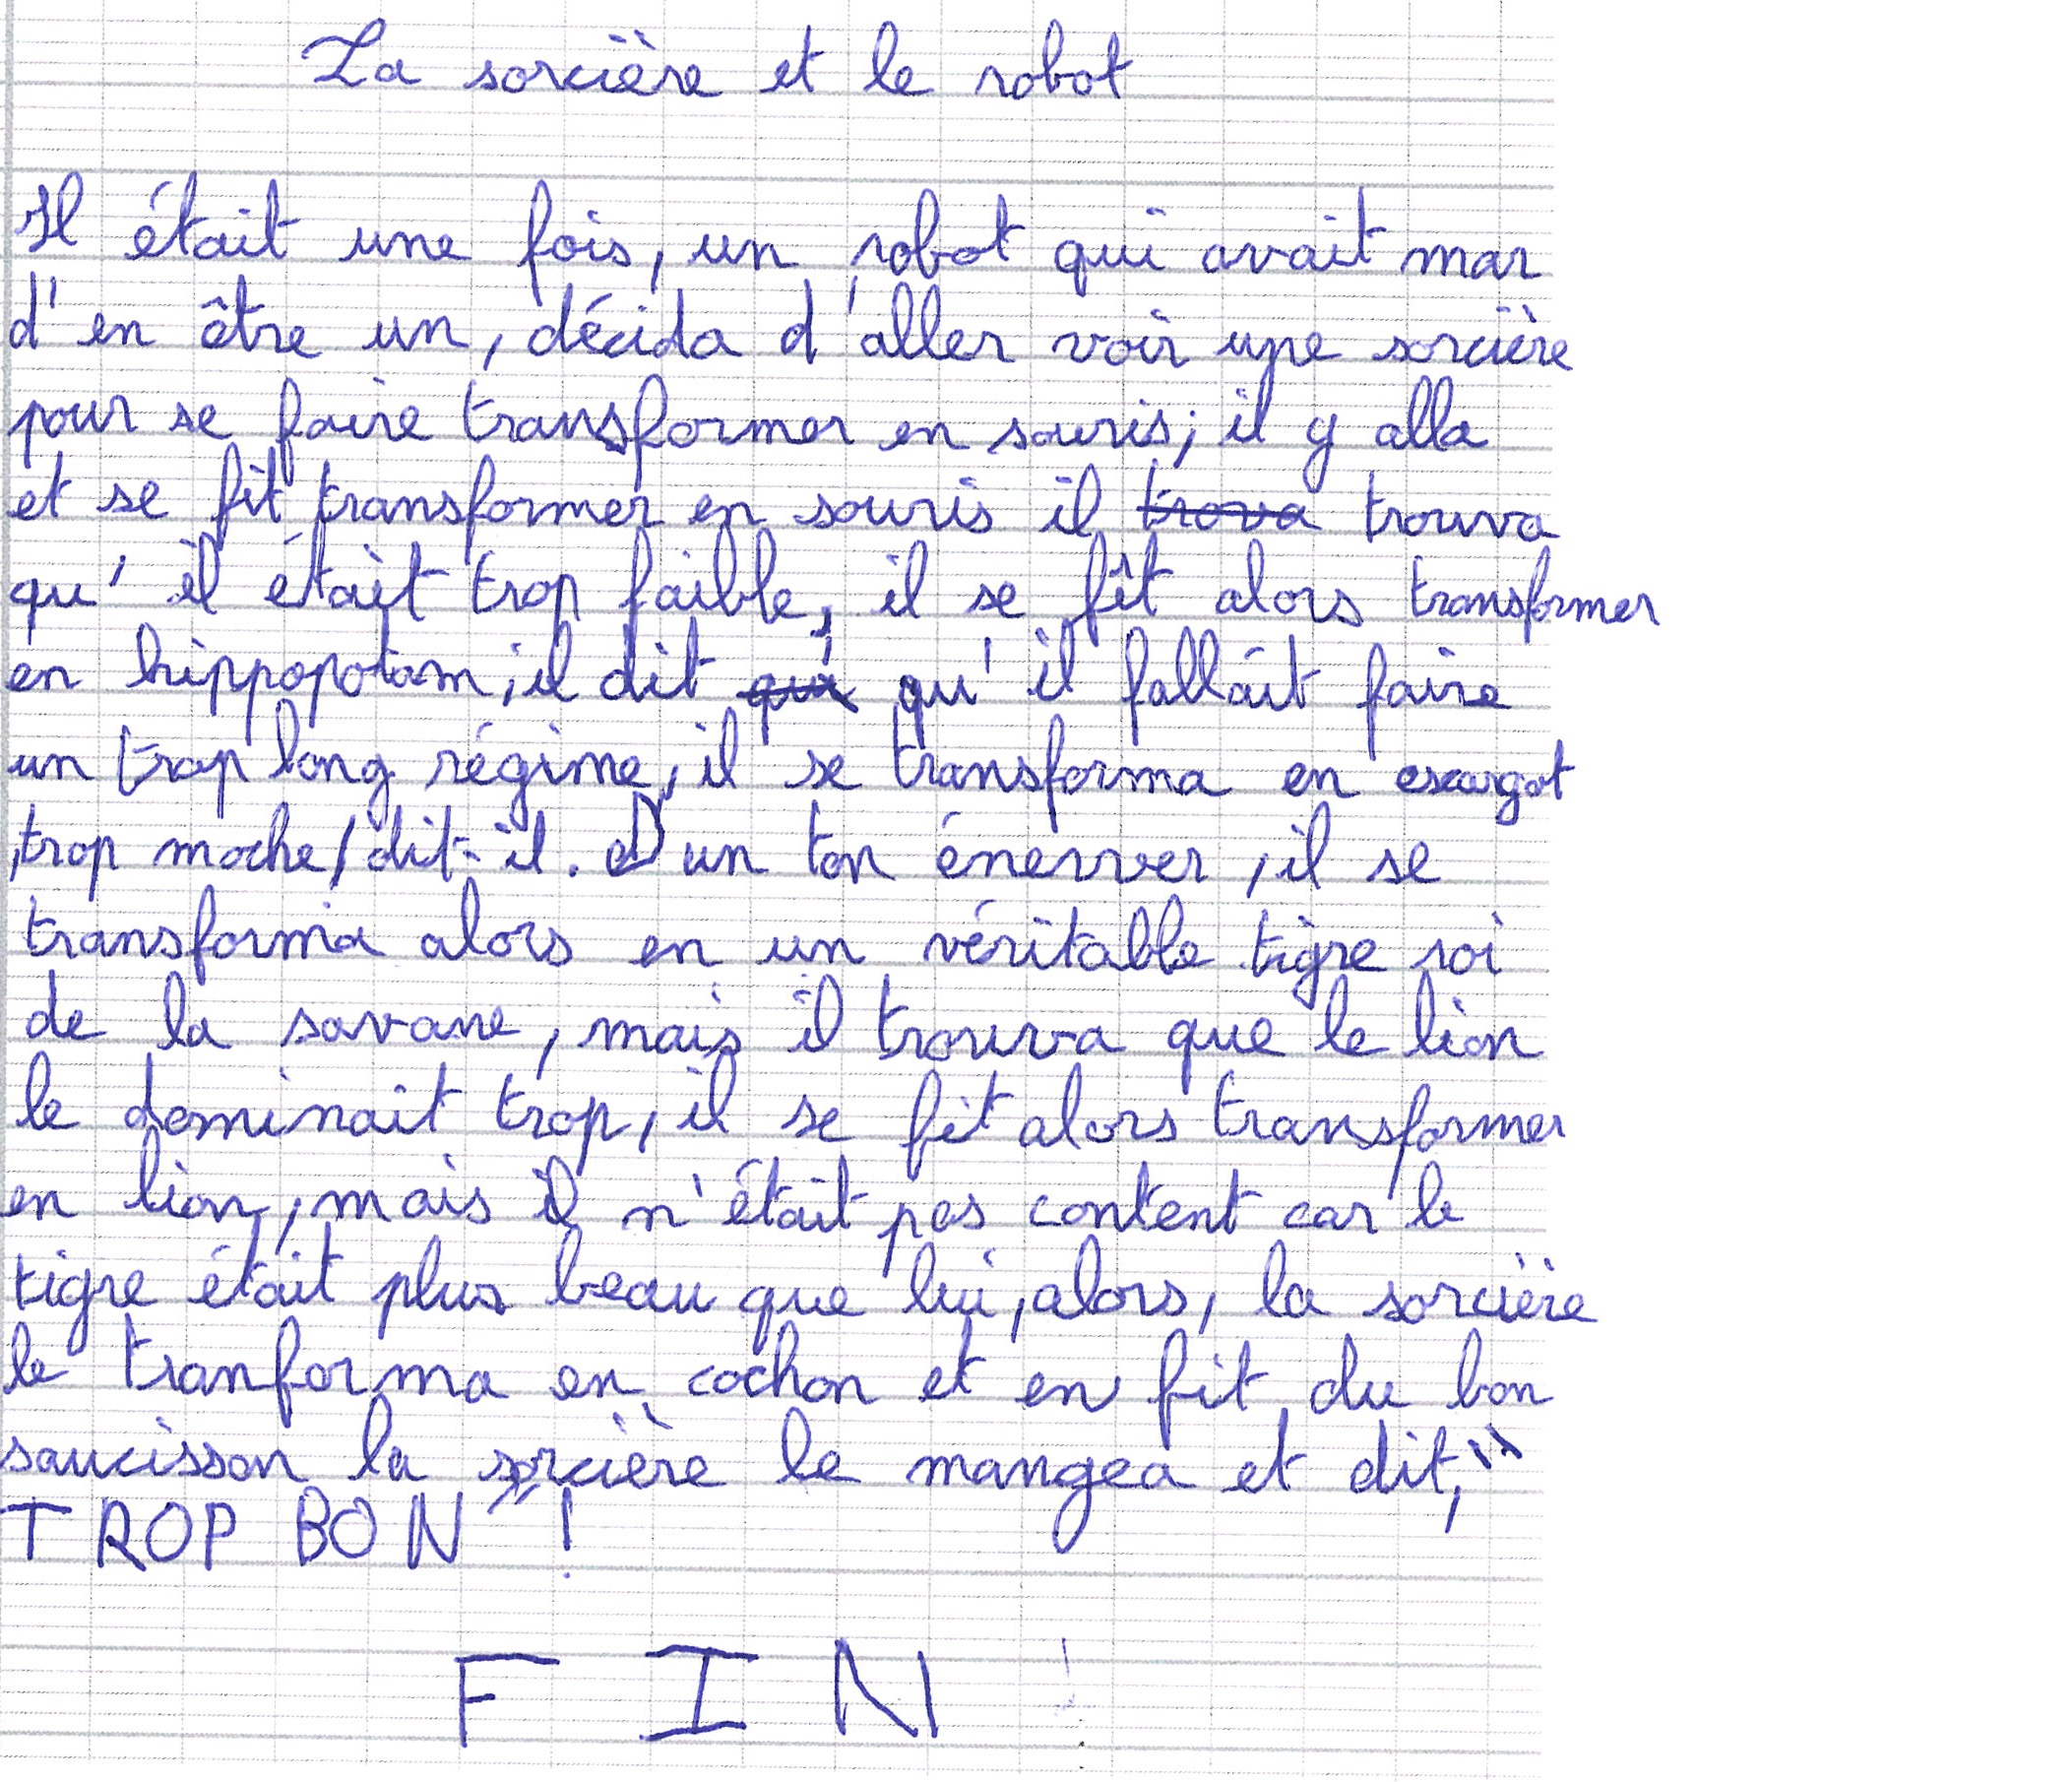 La sorcière et le robot
Il était une fois, un robot qui avait mar
d'en être un, décida d'aller voir une sorcière
pour se faire transformer en souris; il y alla
et se fit transformer en souris il trova trouva
qu'il était trop faible, il se fît alors transformer
en hippopotam, il dit qui qu'il fallait faire
un trop long régime, il se transforma en escargot
,trop moche, dit-il. D'un ton énerver, il se
transforma alors en un véritable tigre roi
de la savane, mais il trouva que le lion
le dominait trop, il se fit alors transformer
en lion, mais il n'était pas content car le
tigre était plus beau que lui, alors, la sorcière
le tranforma en cochon et en fit du bon
saucisson la sorcière le mangea et dit, "
TROP BON" !
FIN